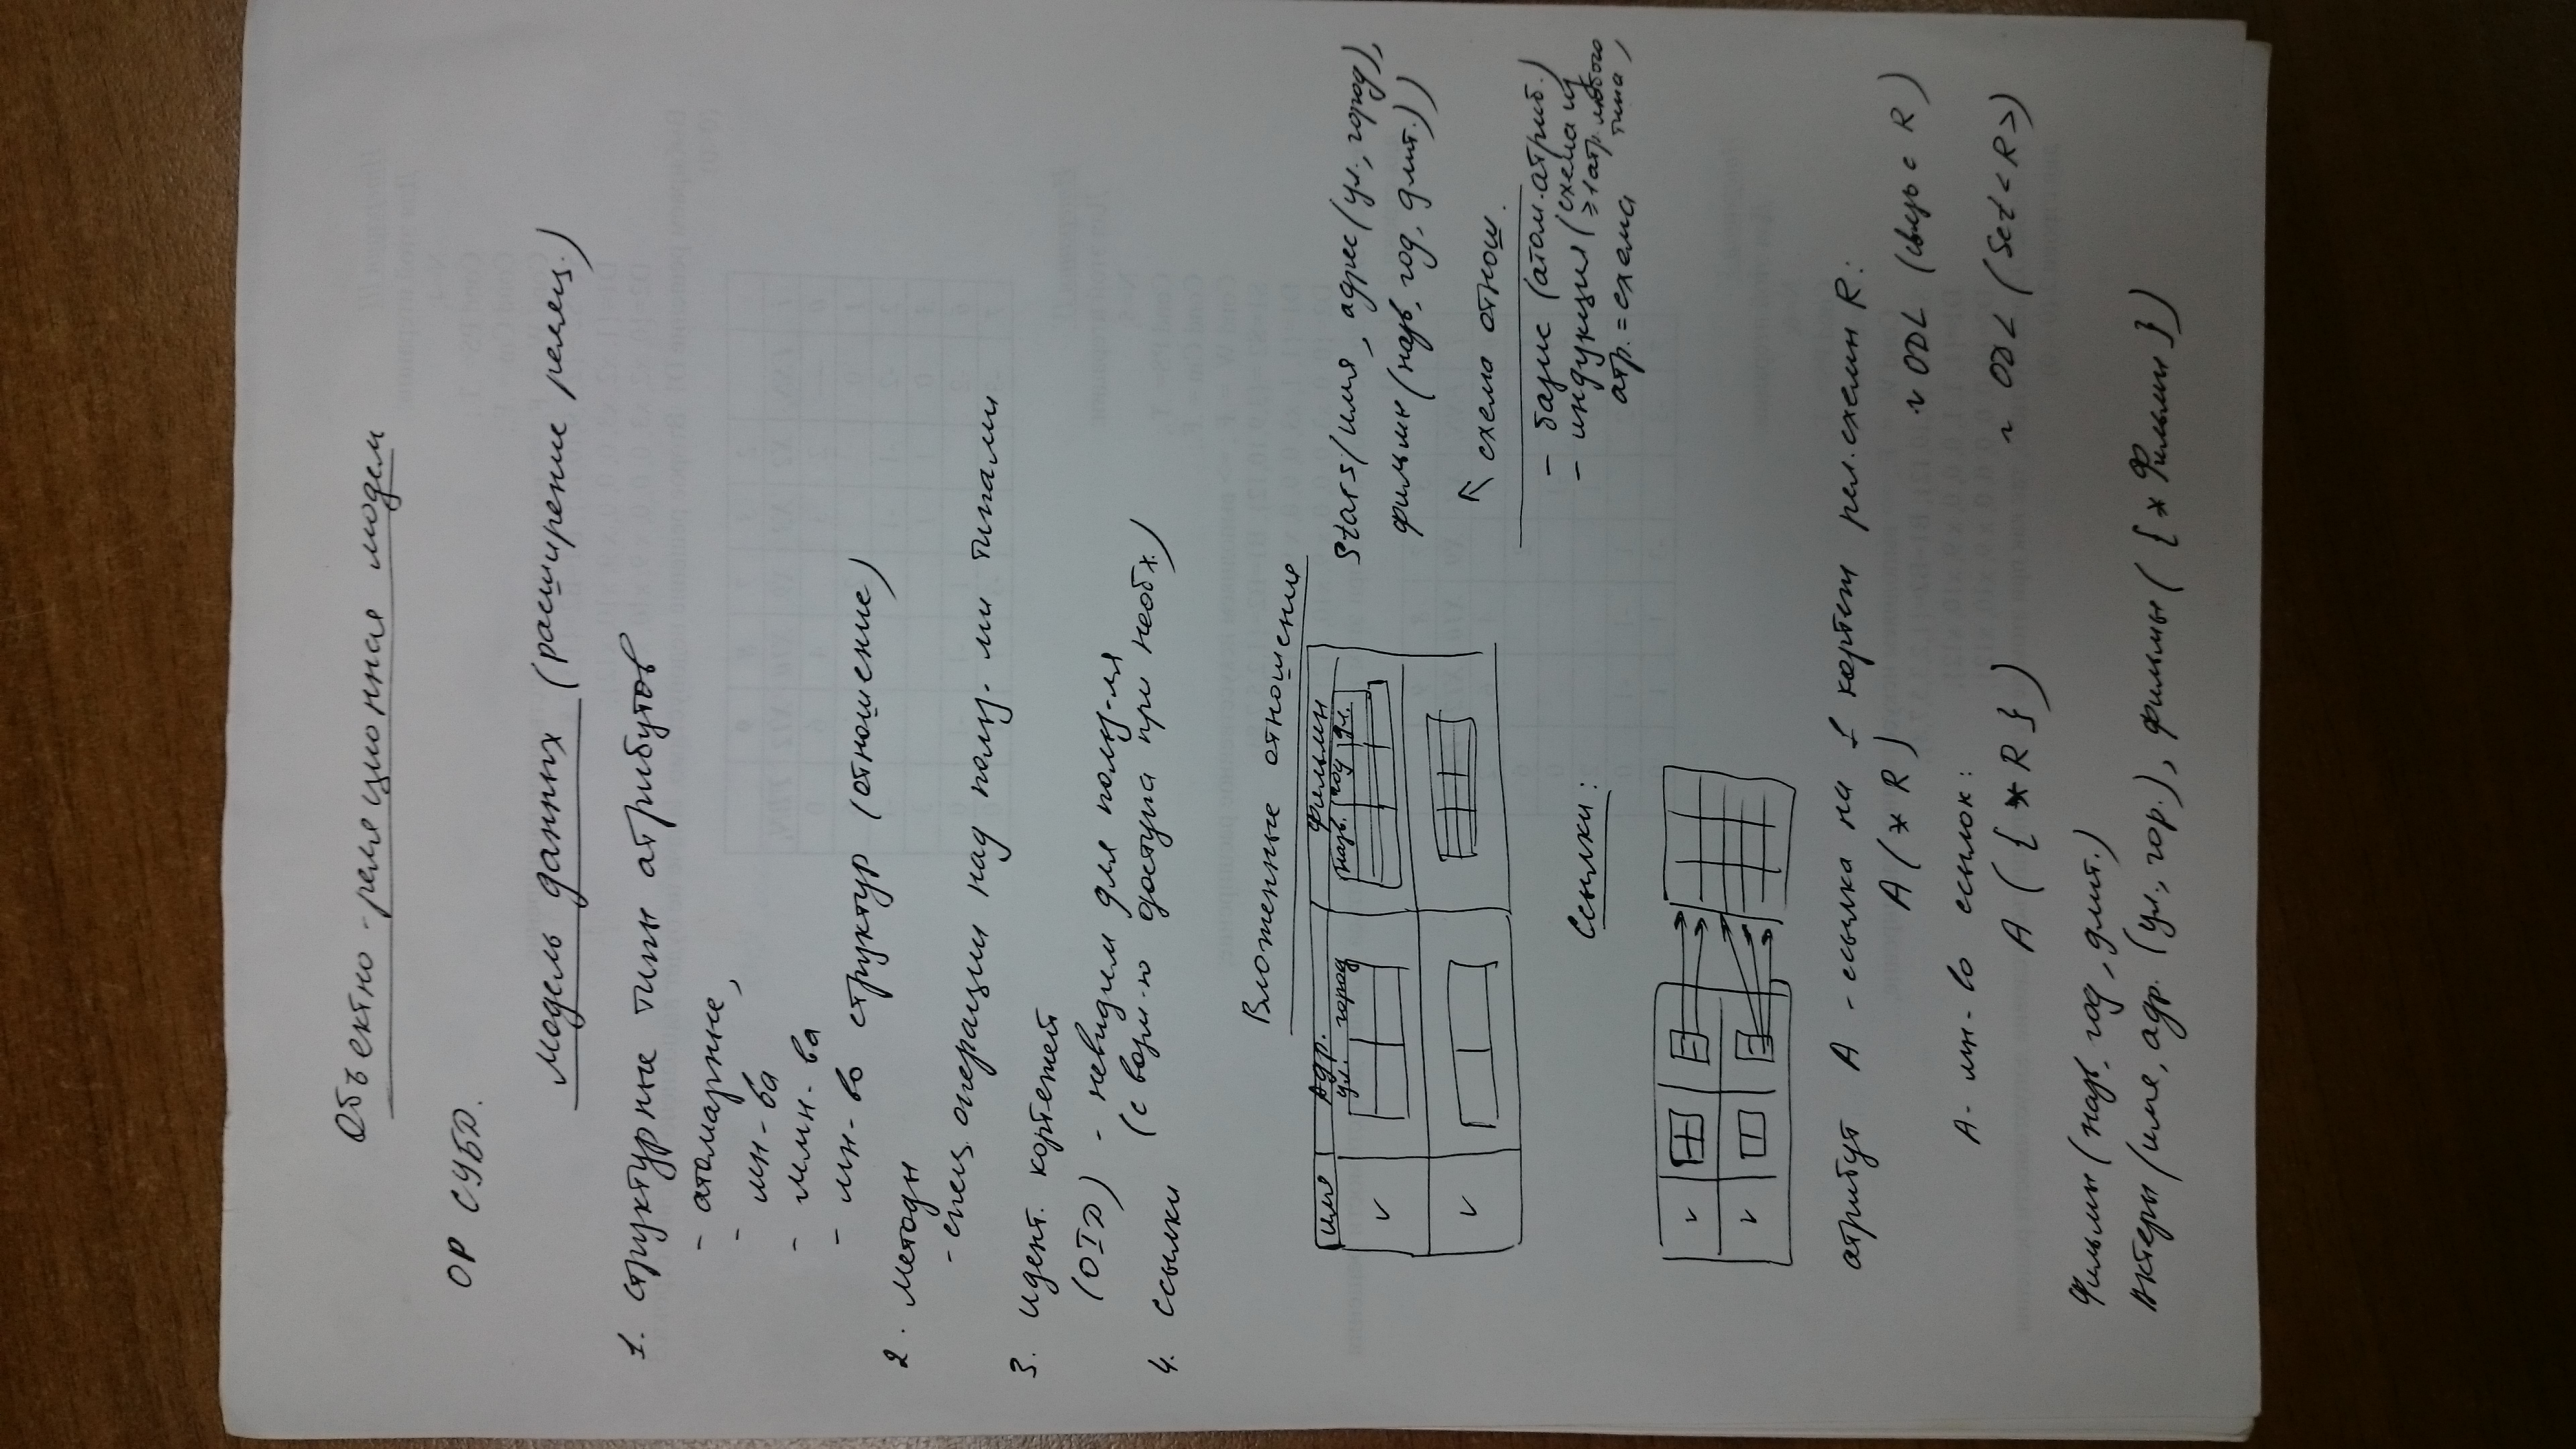 Объектно-реляционная модель
ОР СУБД.
Модель данных (расширение реляц.)
1. структурные типы атрибутов
- атомарные,
- мн-ва
- ммн-ва
- мн-во структур (отношение)
2. Методы
- спец. операции над польз-ми типами
3. идент. кортежей
(OID) - невидим для польз-ля
(с возм-ю доступа при необх.)
4. Ссылки
Вложенные отношение
имя Адр. Фильмы
ул. город назв. год дл.
Stars(имя, адрес(ул., город),
фильмы(назв, год, длит.))
↖ схема отнош.
- базис (атом. атриб.)
- индукция (схема из
≥1 атр. любого
типа)
атр. = схема
Ссылки:
атрибут A - ссылка на 1 кортеж рел. схемы R:
A(*R)
~ ODL (связь с R)
A - мн-во ссылок:
A({*R})
~ ODL (Set<R>)
Фильмы(назв, год, длит.)
Актеры(имя, адр.(ул., гор.), фильмы({*Фильмы})